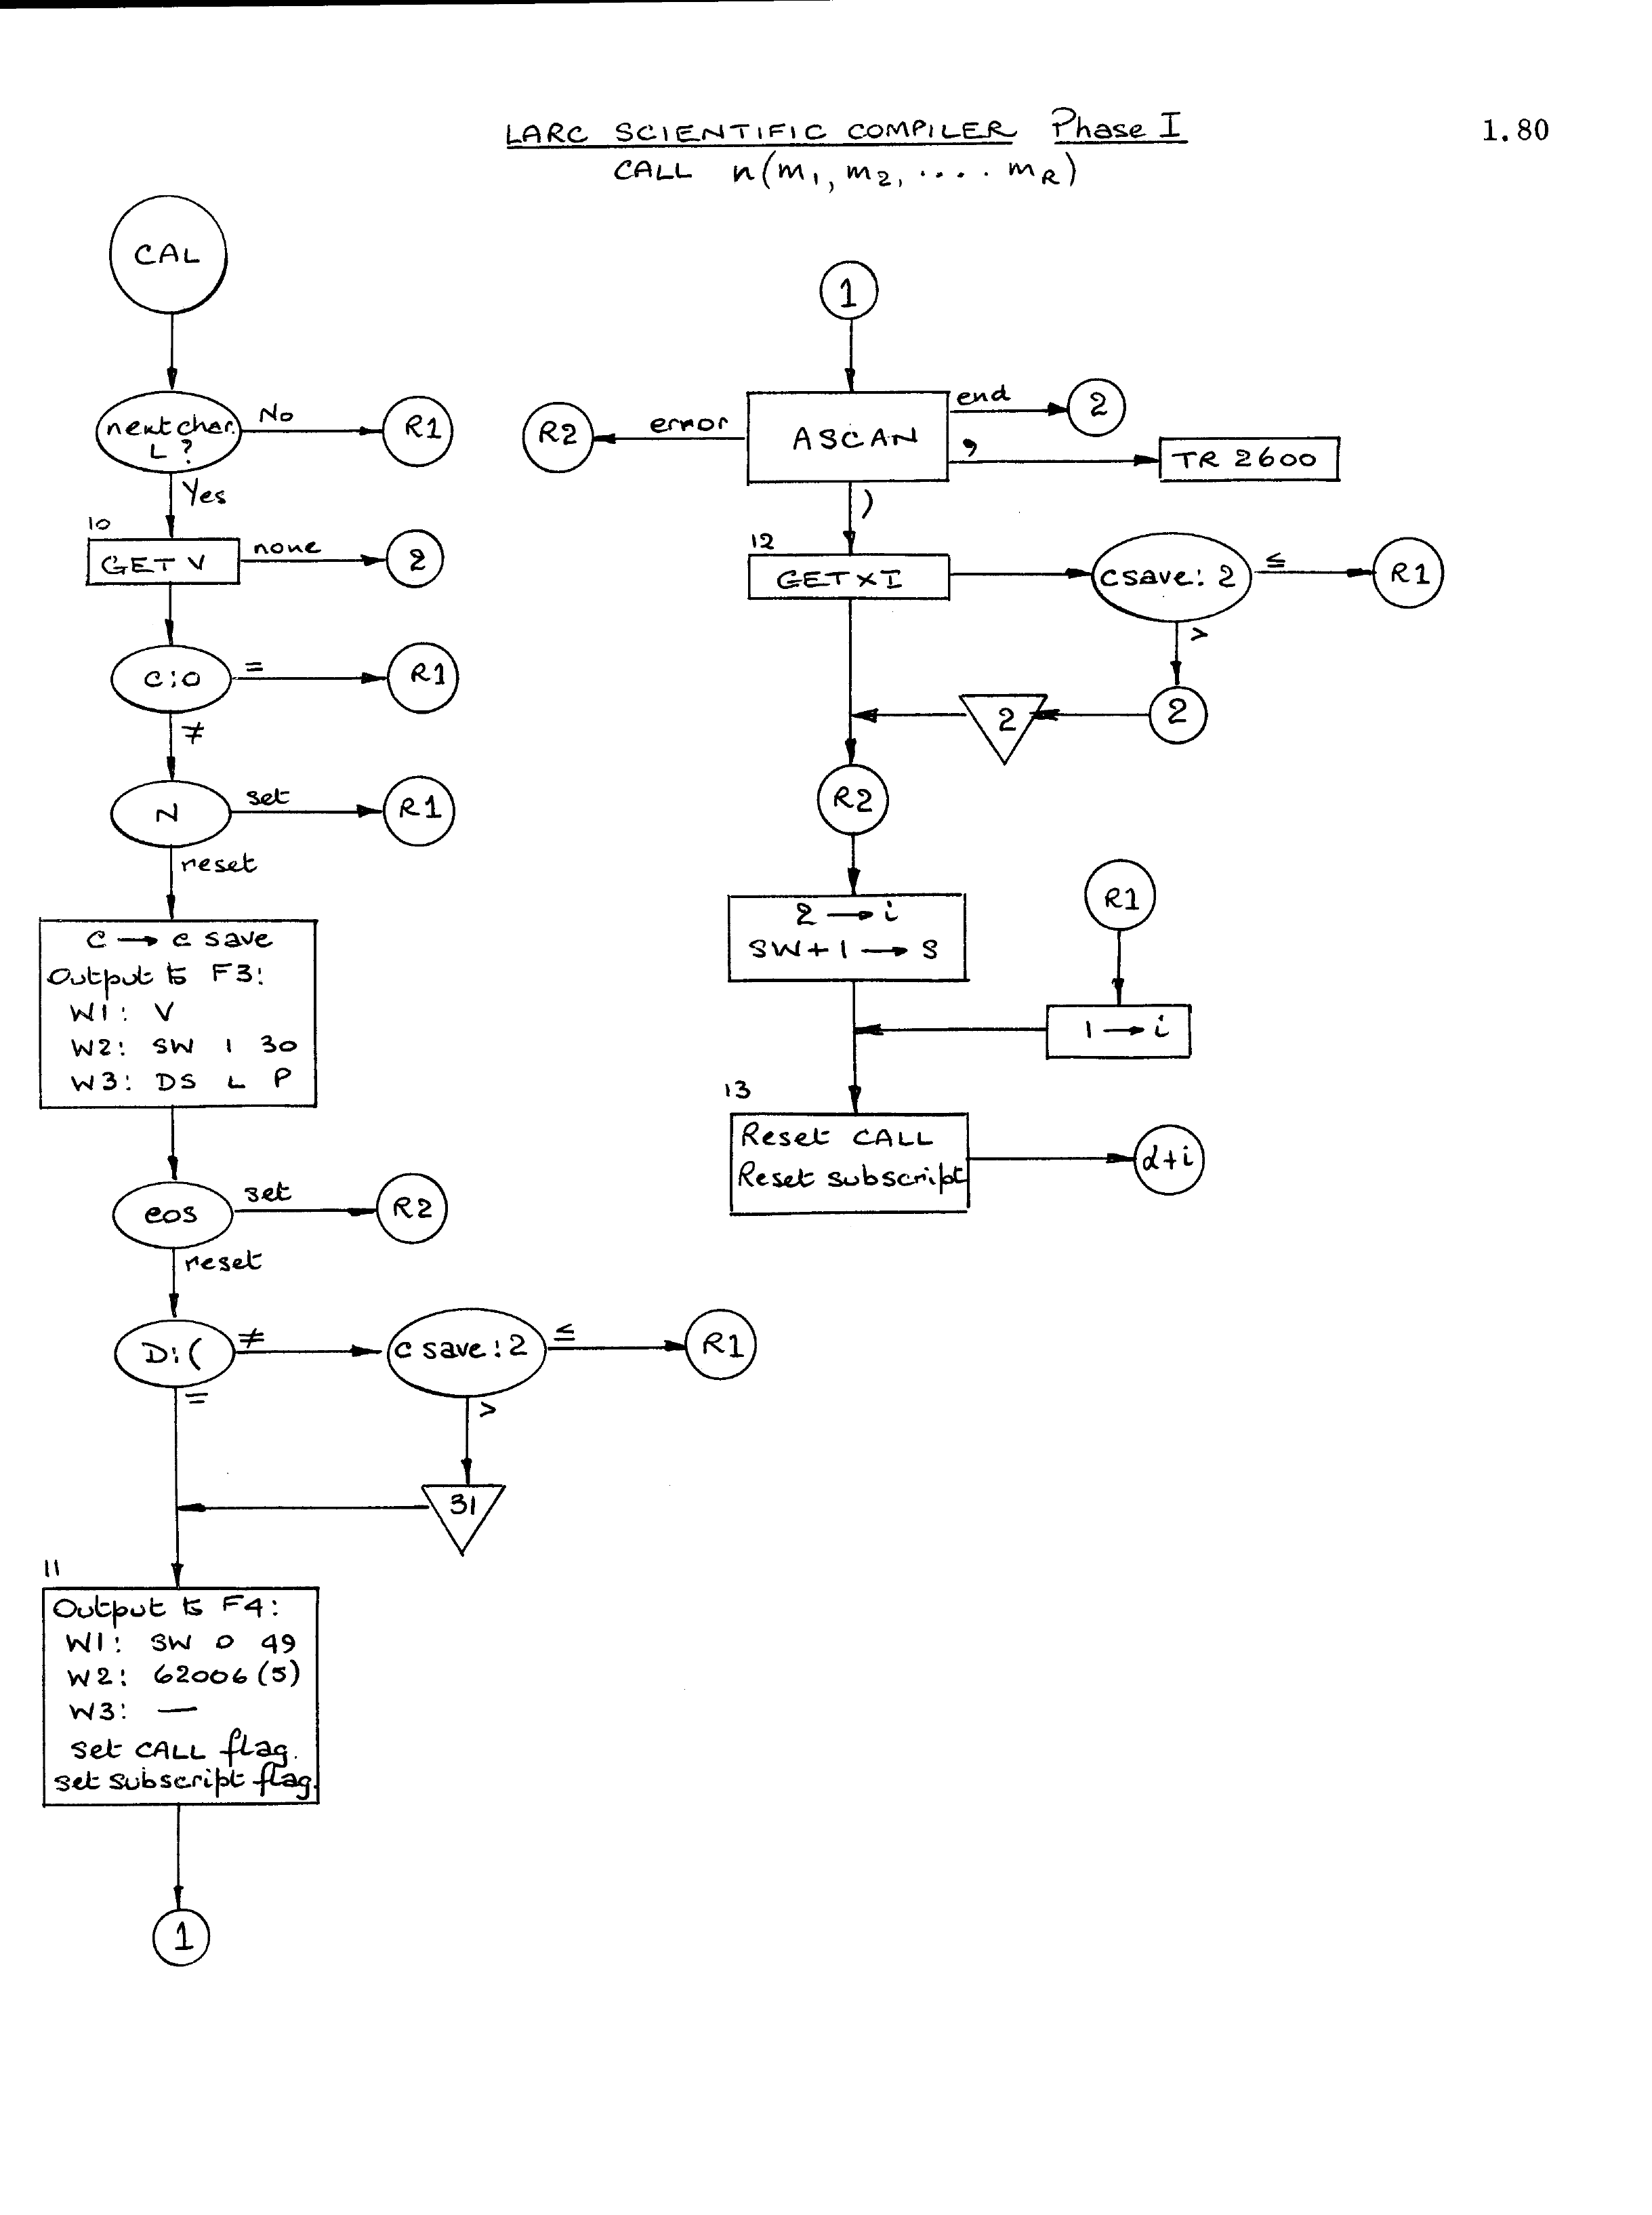 LARC SCIENTIFIC COMPILER Phase I
1.80
CALL n(m1, m2, .... mR)
CAL
next char.
L ?
No
R1
Yes
10
GET V
none
2
C:0
=
R1
≠
N
set
R1
reset
C → c save
Output to F3:
W1: V
W2: SW 1 30
W3: DS L P
eos
set
R2
reset
D:(
≠
c save:2
≤
R1
=
>
31
11
Output to F4:
W1: SW 0 49
W2: 62006(5)
W3: —
set CALL flag.
set subscript flag.
1
1
ASCAN
error
R2
end
2
,
TR 2600
)
12
GETXI
csave:2
≤
R1
>
2
2
R2
2 → i
SW+1 → S
R1
1 → i
13
Reset CALL
Reset subscript
α+i